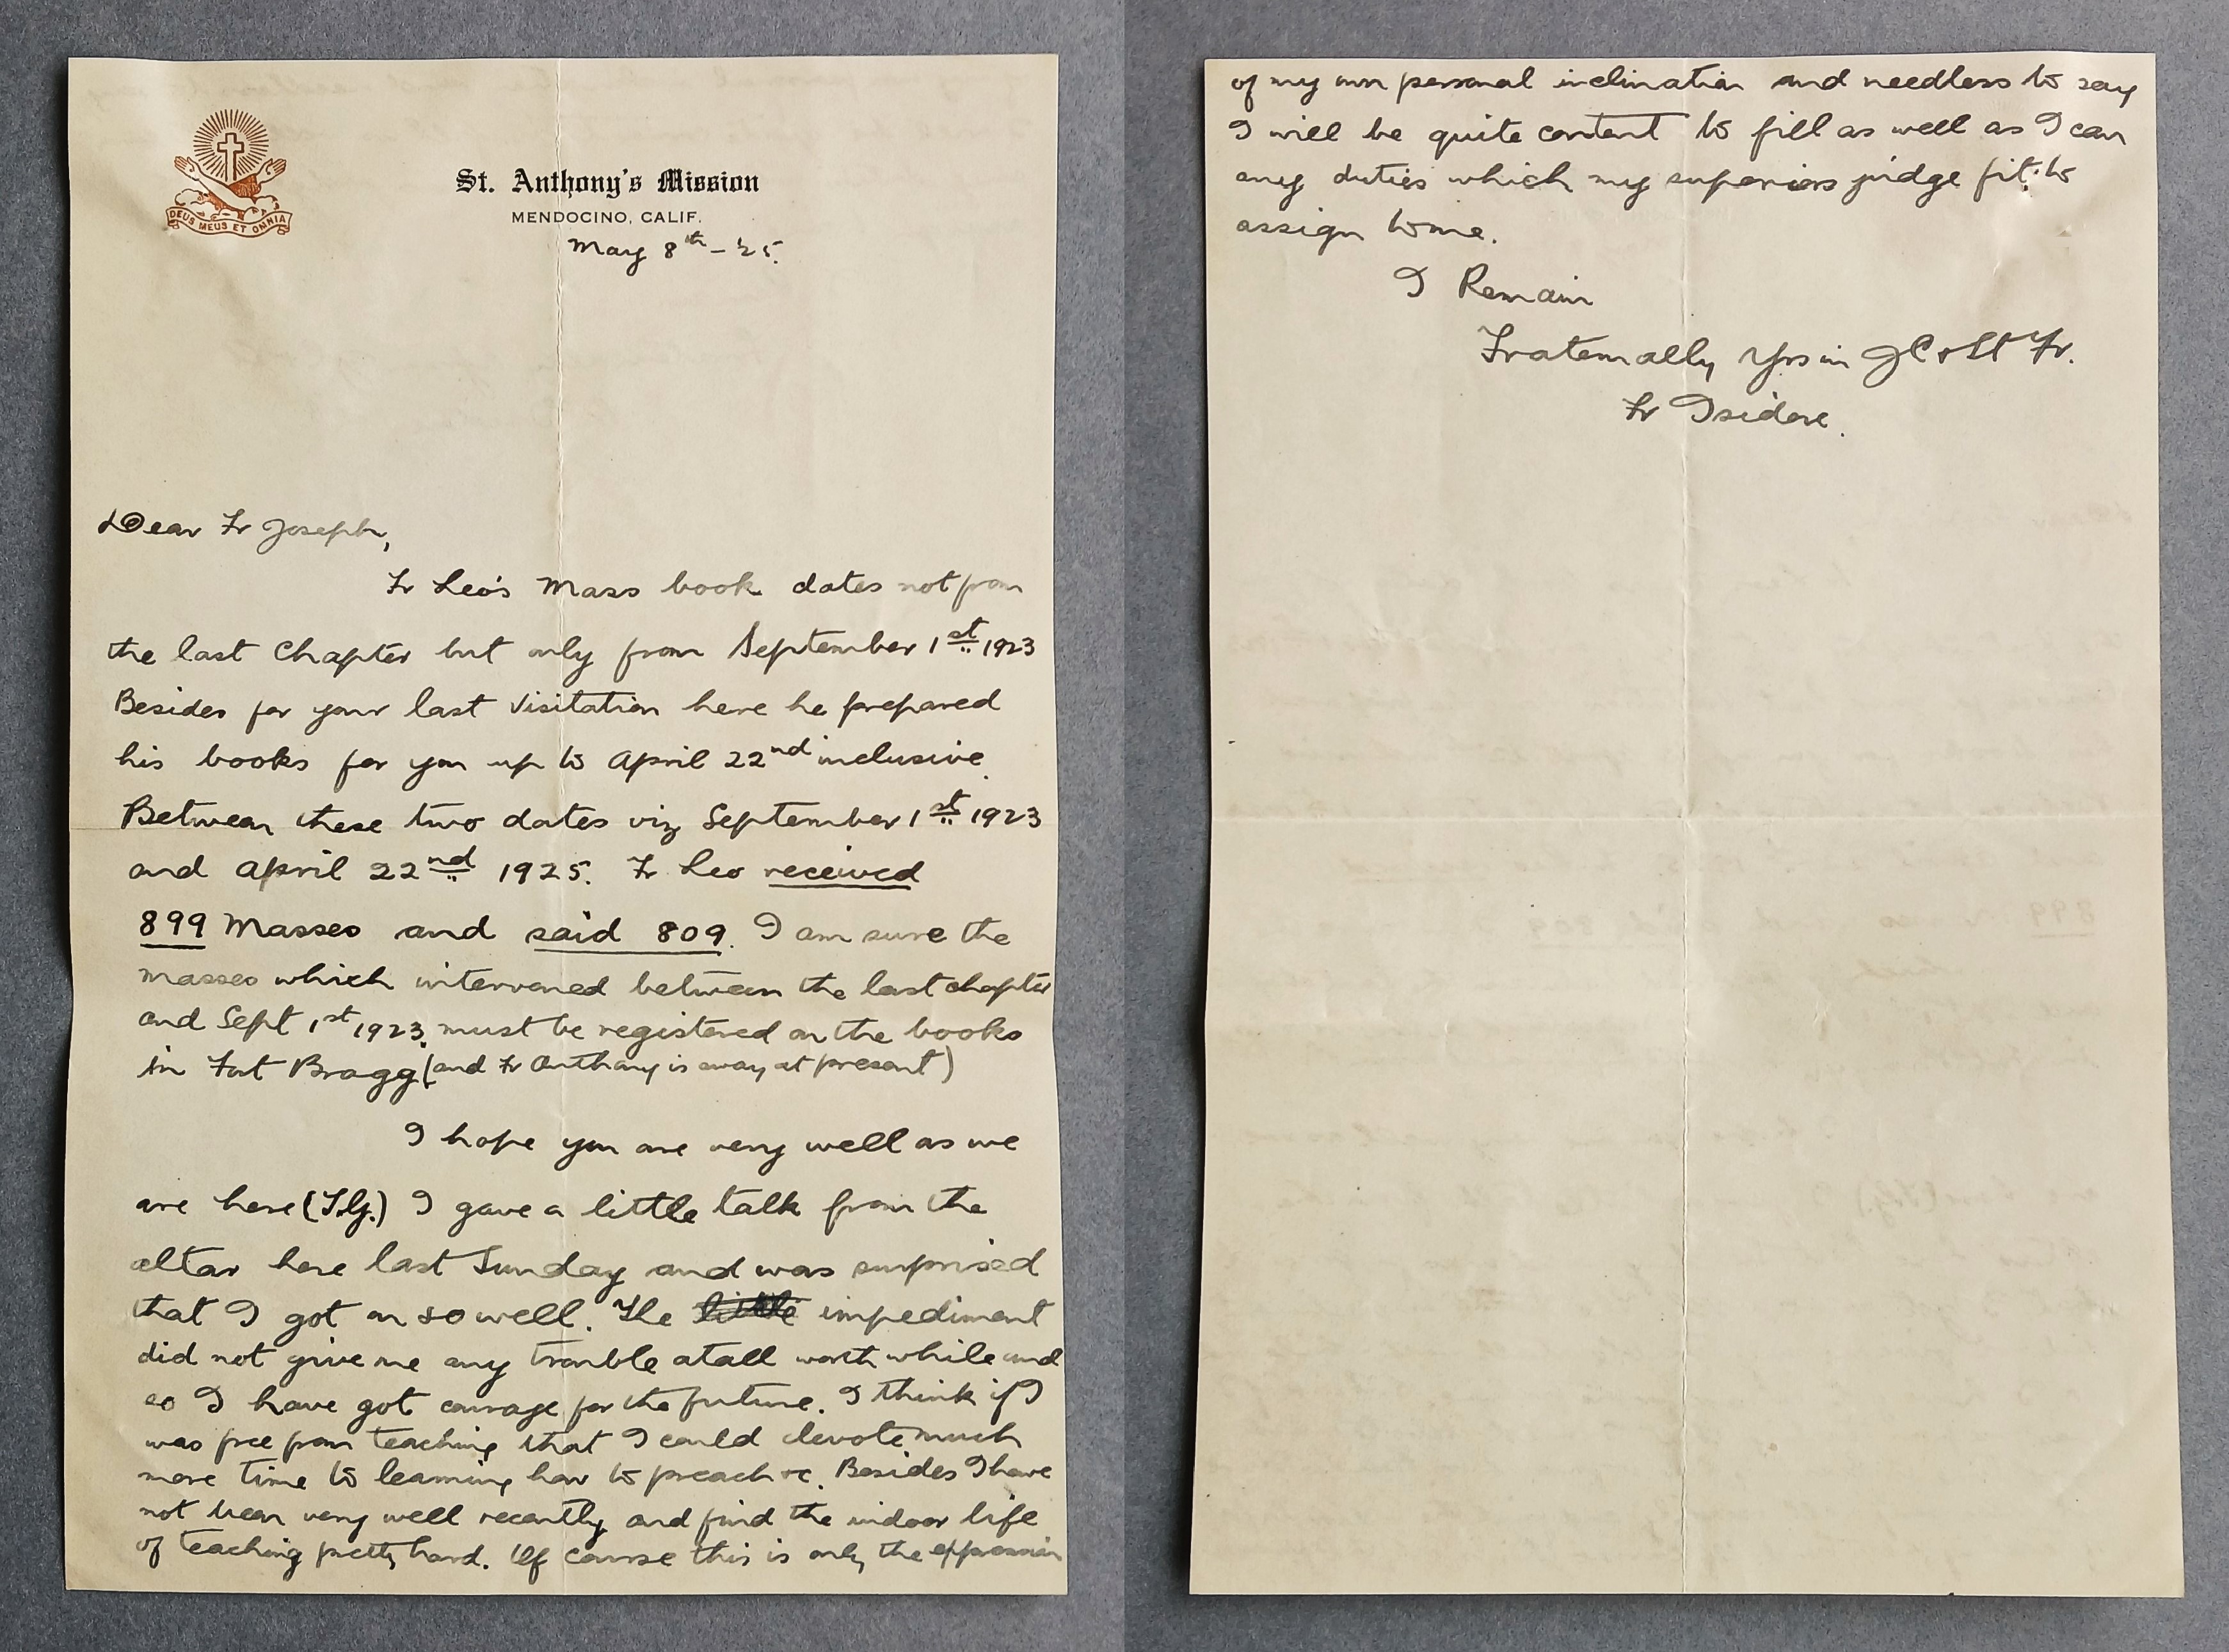 DEUS MEUS ET OMNIA
St. Anthony's Mission
MENDOCINO, CALIF.
May 8th - '25.
Dear Fr Joseph,
Fr Leo's Mass book dates not from
the last Chapter but only from September 1st 1923
Besides for your last Visitation here he prepared
his books for you up to April 22nd inclusive.
Between these two dates viz September 1st 1923
and April 22nd 1925. Fr Leo received
899 Masses and said 809. I am sure the
masses which intervened between the last chapter
and Sept 1st 1923, must be registered on the books
in Fort Bragg (and Fr Anthony is away at present)
I hope you are very well as we
are here (T.g.) I gave a little talk from the
altar here last Sunday and was surprised
that I got on so well. The little impediment
did not give me any trouble atall worth while and
so I have got courage for the future. I think if I
was free from teaching that I could devote much
more time to learning how to preach &c. Besides I have
not been very well recently and find the indoor life
of teaching pretty hard. Of course this is only the expression
of my own personal inclination and needless to say
I will be quite content to fill as well as I can
any duties which my superiors judge fit to
assign to me.
I Remain
Fraternally Yrs in JC & St Fr.
Fr Isidore.